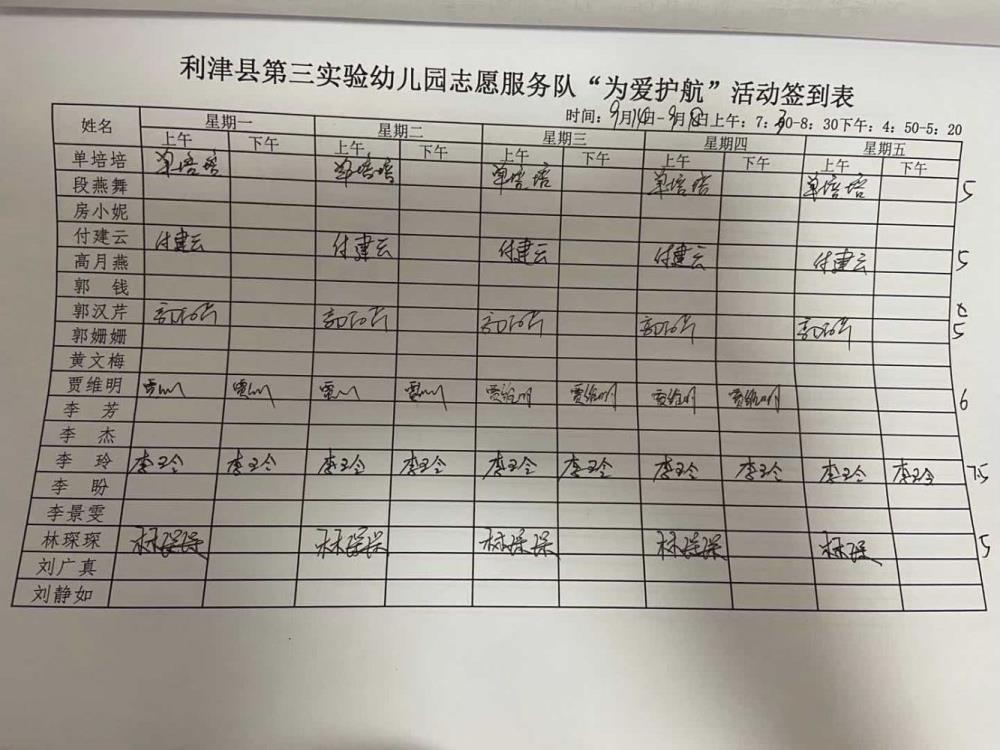 利津县第三实验幼儿园志愿服务队“为爱护航”活动签到表
时间:9月14日-9月18日上午:7:30-8:30下午:4:50-5:20
姓名 星期一 星期二 星期三 星期四 星期五
上午 下午 上午 下午 上午 下午 上午 下午 上午 下午
单培培 单培培 单培培 单培培 单培培 单培培 5
段燕舞
房小妮
付建云 付建云 付建云 付建云 付建云 付建云 5
高月燕
郭 钱
郭汉芹 郭汉芹 郭汉芹 郭汉芹 郭汉芹 郭汉芹 5
郭姗姗
黄文梅
贾维明 贾维明 贾维明 贾维明 贾维明 6
李 芳
李 杰
李 玲 李玲 李玲 李玲 李玲 李玲 李玲 李玲 李玲 李玲 李玲 7.5
李 盼
李景雯
林琛琛 林琛琛 林琛琛 林琛琛 林琛琛 林琛 5
刘广真
刘静如